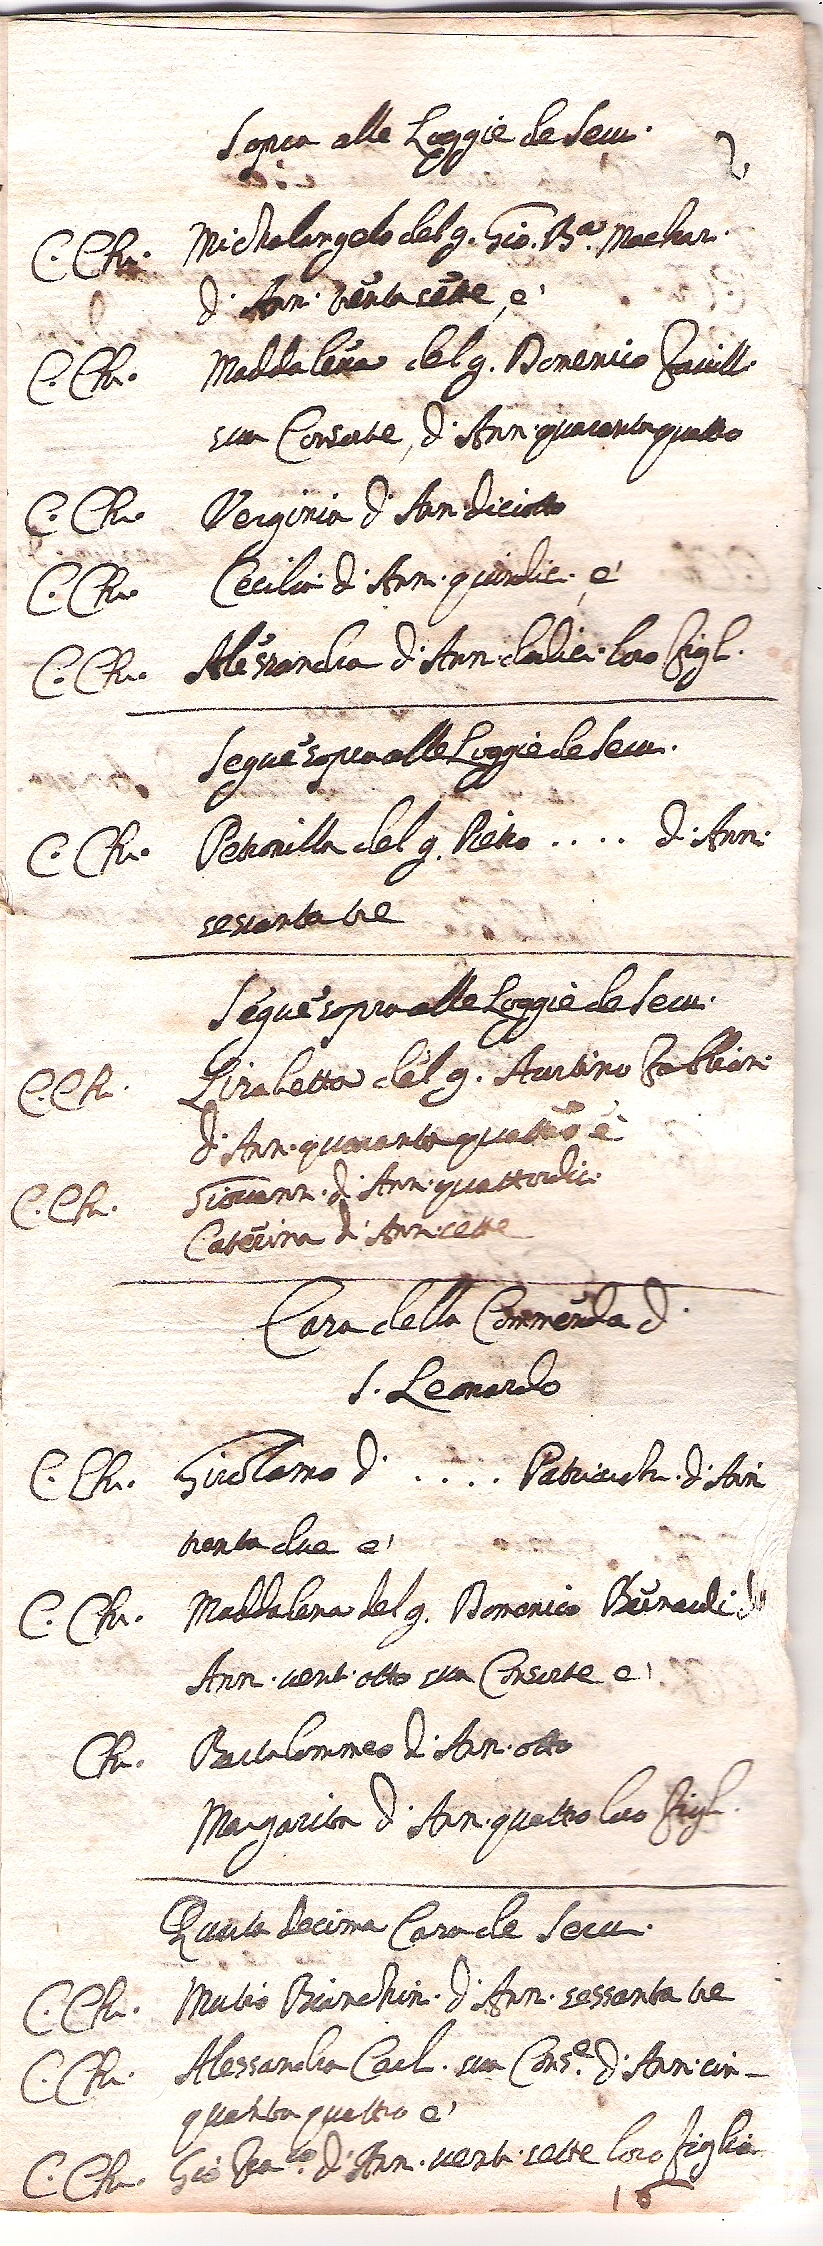 Sopra alle Loggie de Seru.
2
C. Chr. Michelangelo del q. Gio. Ba. Machar.
d. Ann. trenta sette, e'
C. Chr. Maddalena del q. Domenico Fauill.
sua Consorte, d. Ann. quarantaquatto
C. Chr. Verginia d. Ann. diciotto
C. Chr. Cecilia d. Ann. quindic. e'
C. Chr. Alessandra d. Ann. dodici. loro figl.
Segue sopra alle Loggie de Seru.
C. Chr. Petronilla del q. Pietro .... d. Ann.
sessanta tre
Segue sopra alle Loggie de Seru.
C. Chr. Lisabetta del q. Santino Fabbian.
d. Ann. quaranta quattro e'
C. Chr. Giouann. d. Ann. quattordic.
Caterina d. Ann. sette
Casa della Commenda d.
S. Leonardo
C. Chr. Girolamo d. .... Patriarch. d. Ann
trenta due e'
C. Chr. Maddalena del q. Domenico d.
Ann. uent. otto sua Consorte e'
Chr. Bartolommeo d. Ann. otto
Margarita d. Ann. quatto loro figl.
Quinta decima Casa de Seru.
C. Chr. Mutio Bianchin. d. Ann. sessanta tre
C. Chr. Alessandra sua Conse. d. Ann. cin-
quanta quattro e'
C. Chr. Gio Franco. d. Ann. uent. sette loro figlio
16